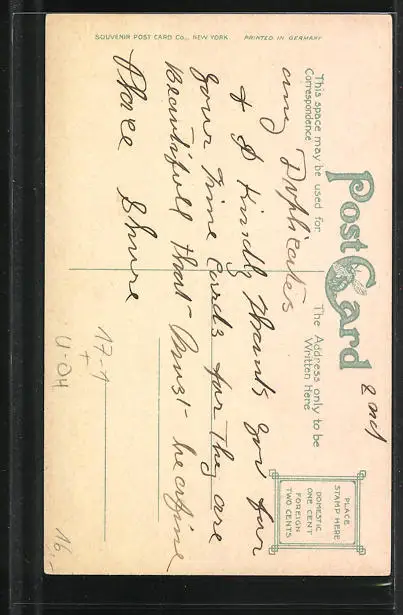 Post Card
2nd
This space may be used for
Correspondence
The Address only to be
Written Here
PLACE
STAMP HERE
DOMESTIC
ONE CENT
FOREIGN
TWO CENTS
any Duplicates
+ I Kindly thank you for
your nine Cards for they are
Beautifull that Must be a fine
Place Shure
SOUVENIR POST CARD Co., NEW YORK
PRINTED IN GERMANY
U-04
16.-